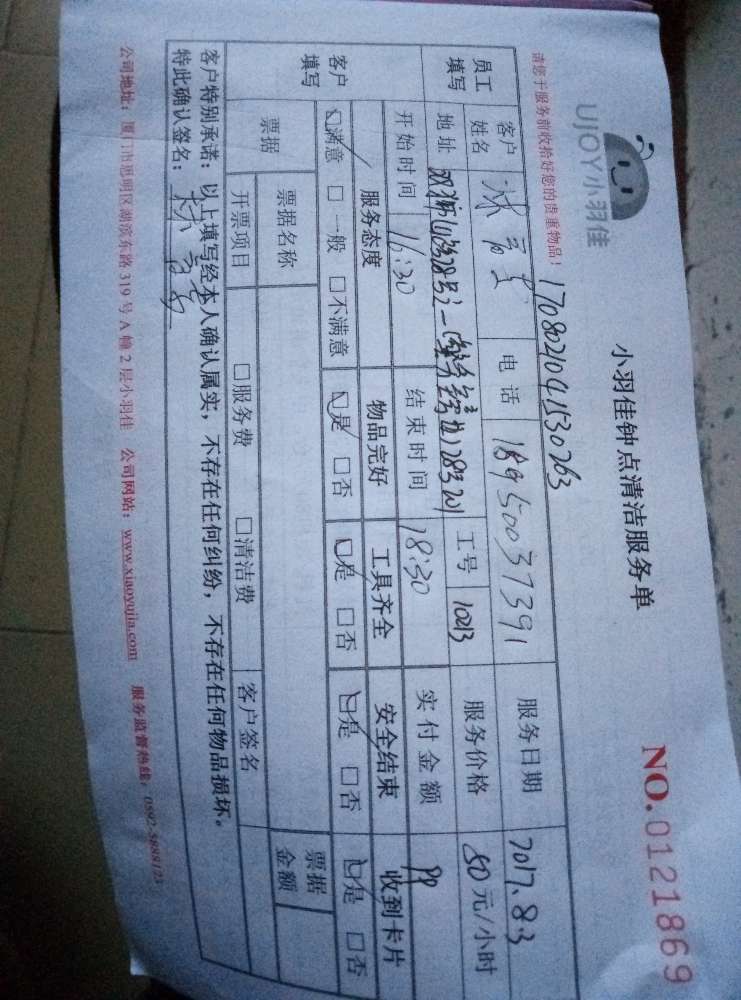 UJOY小羽佳
小羽佳钟点清洁服务单
NO.0121869
请您于服务前收拾好您的贵重物品！
1708021041530763
员工填写
客户姓名
电话 18950037391
服务日期 2017.8.3
地址
工号 10213
服务价格 50元/小时
开始时间 16:30
结束时间 18:30
实付金额
客户填写
服务态度 物品完好 工具齐全 安全结束 收到卡片
☑满意 □一般 □不满意 ☑是 □否 ☑是 □否 ☑是 □否 ☑是 □否
票据
票据名称
票据金额
开票项目 □服务费 □清洁费 客户签名
客户特别承诺：以上填写经本人确认属实，不存在任何纠纷，不存在任何物品损坏。
特此确认签名：
公司地址：厦门市思明区湖滨东路319号A幢2层小羽佳 公司网站：www.xiaoyujia.com 服务监督热线：0592-5888123